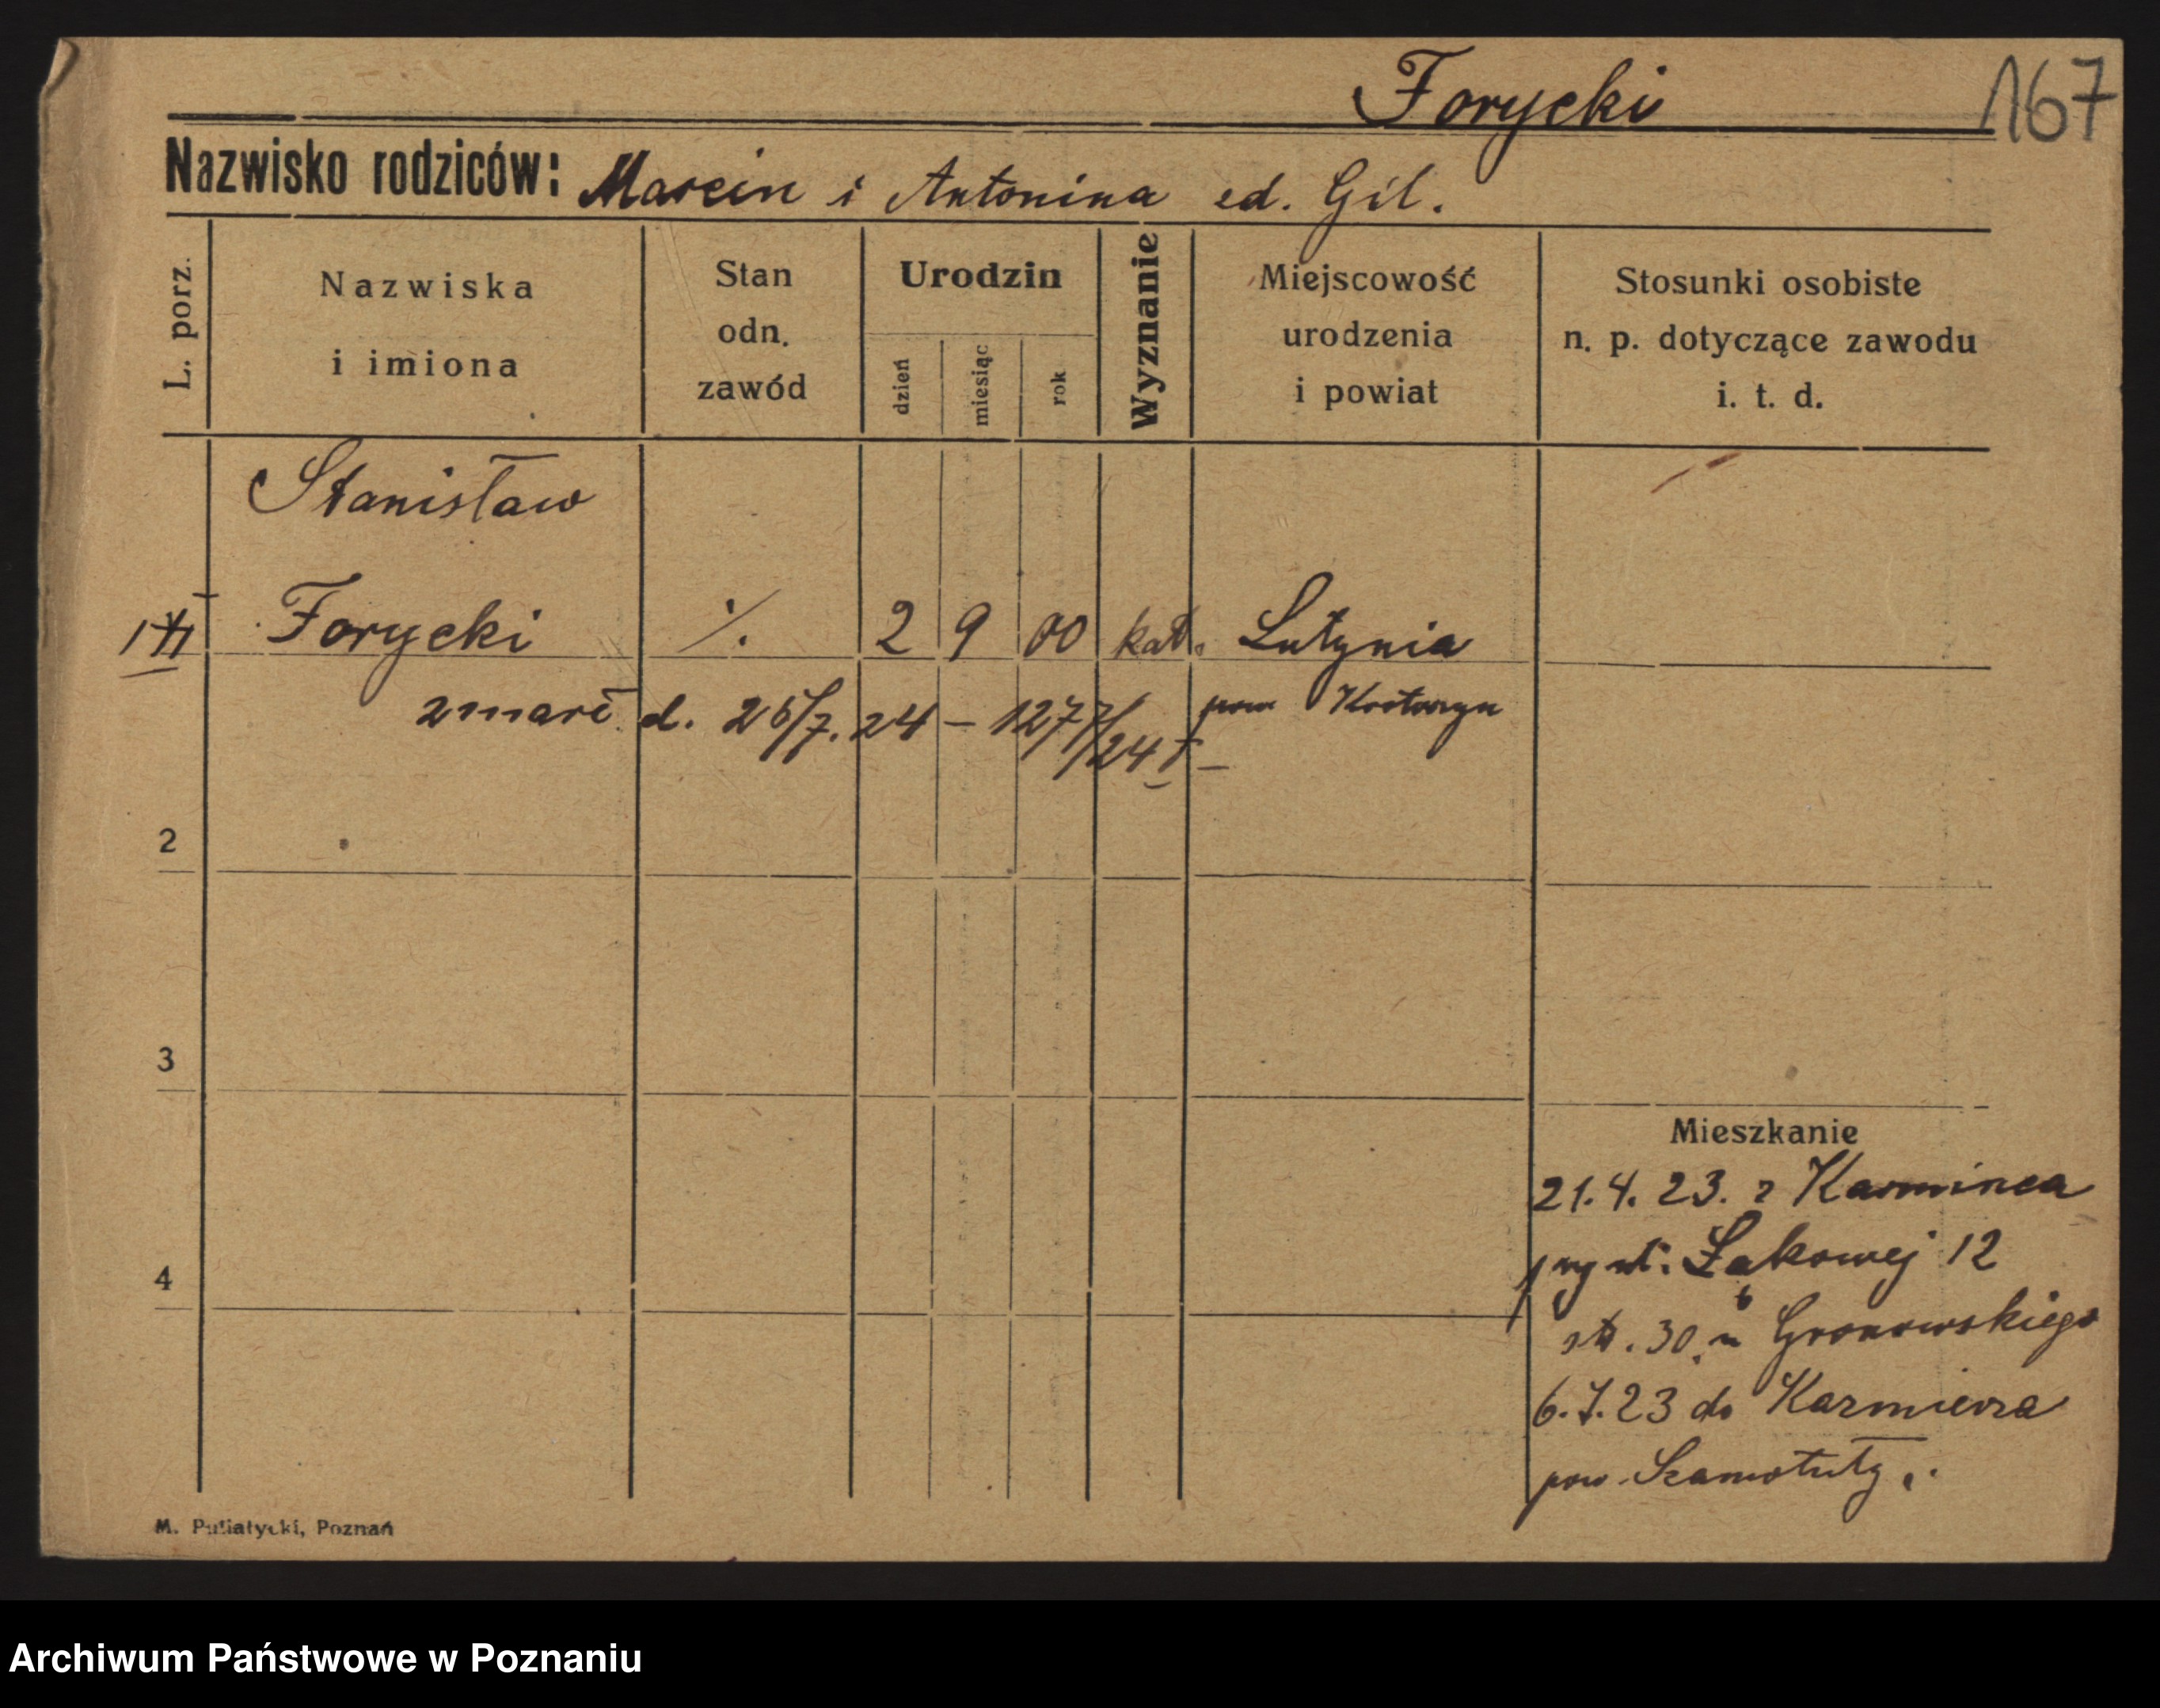 Forycki
167
Nazwisko rodziców: Marcin i Antonina ed. Gil.
L. porz.
Nazwiska
i imiona
Stan
odn.
zawód
Urodzin
dzień
miesiąc
rok
Wyznanie
Miejscowość
urodzenia
i powiat
Stosunki osobiste
n. p. dotyczące zawodu
i. t. d.
Stanisław
1 Forycki ./. 2 9 00 kat. Lutynia
zmarł d. 26/7. 24 – 1277/24 pow
2
3
Mieszkanie
21.4.23. z Karminca
ul. Łąkowej 12
4
30 u Gronowskiego
6.7.23 do Kazmierza
pow. Szamotuły.
M. Putiatycki, Poznań
Archiwum Państwowe w Poznaniu